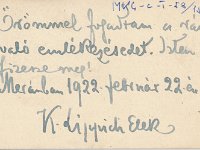 Örömmel fogadtam a
való emlékezésedet. Isten
fizesse meg!
Meránban 1922 február 22-én
K. Lippich Elek